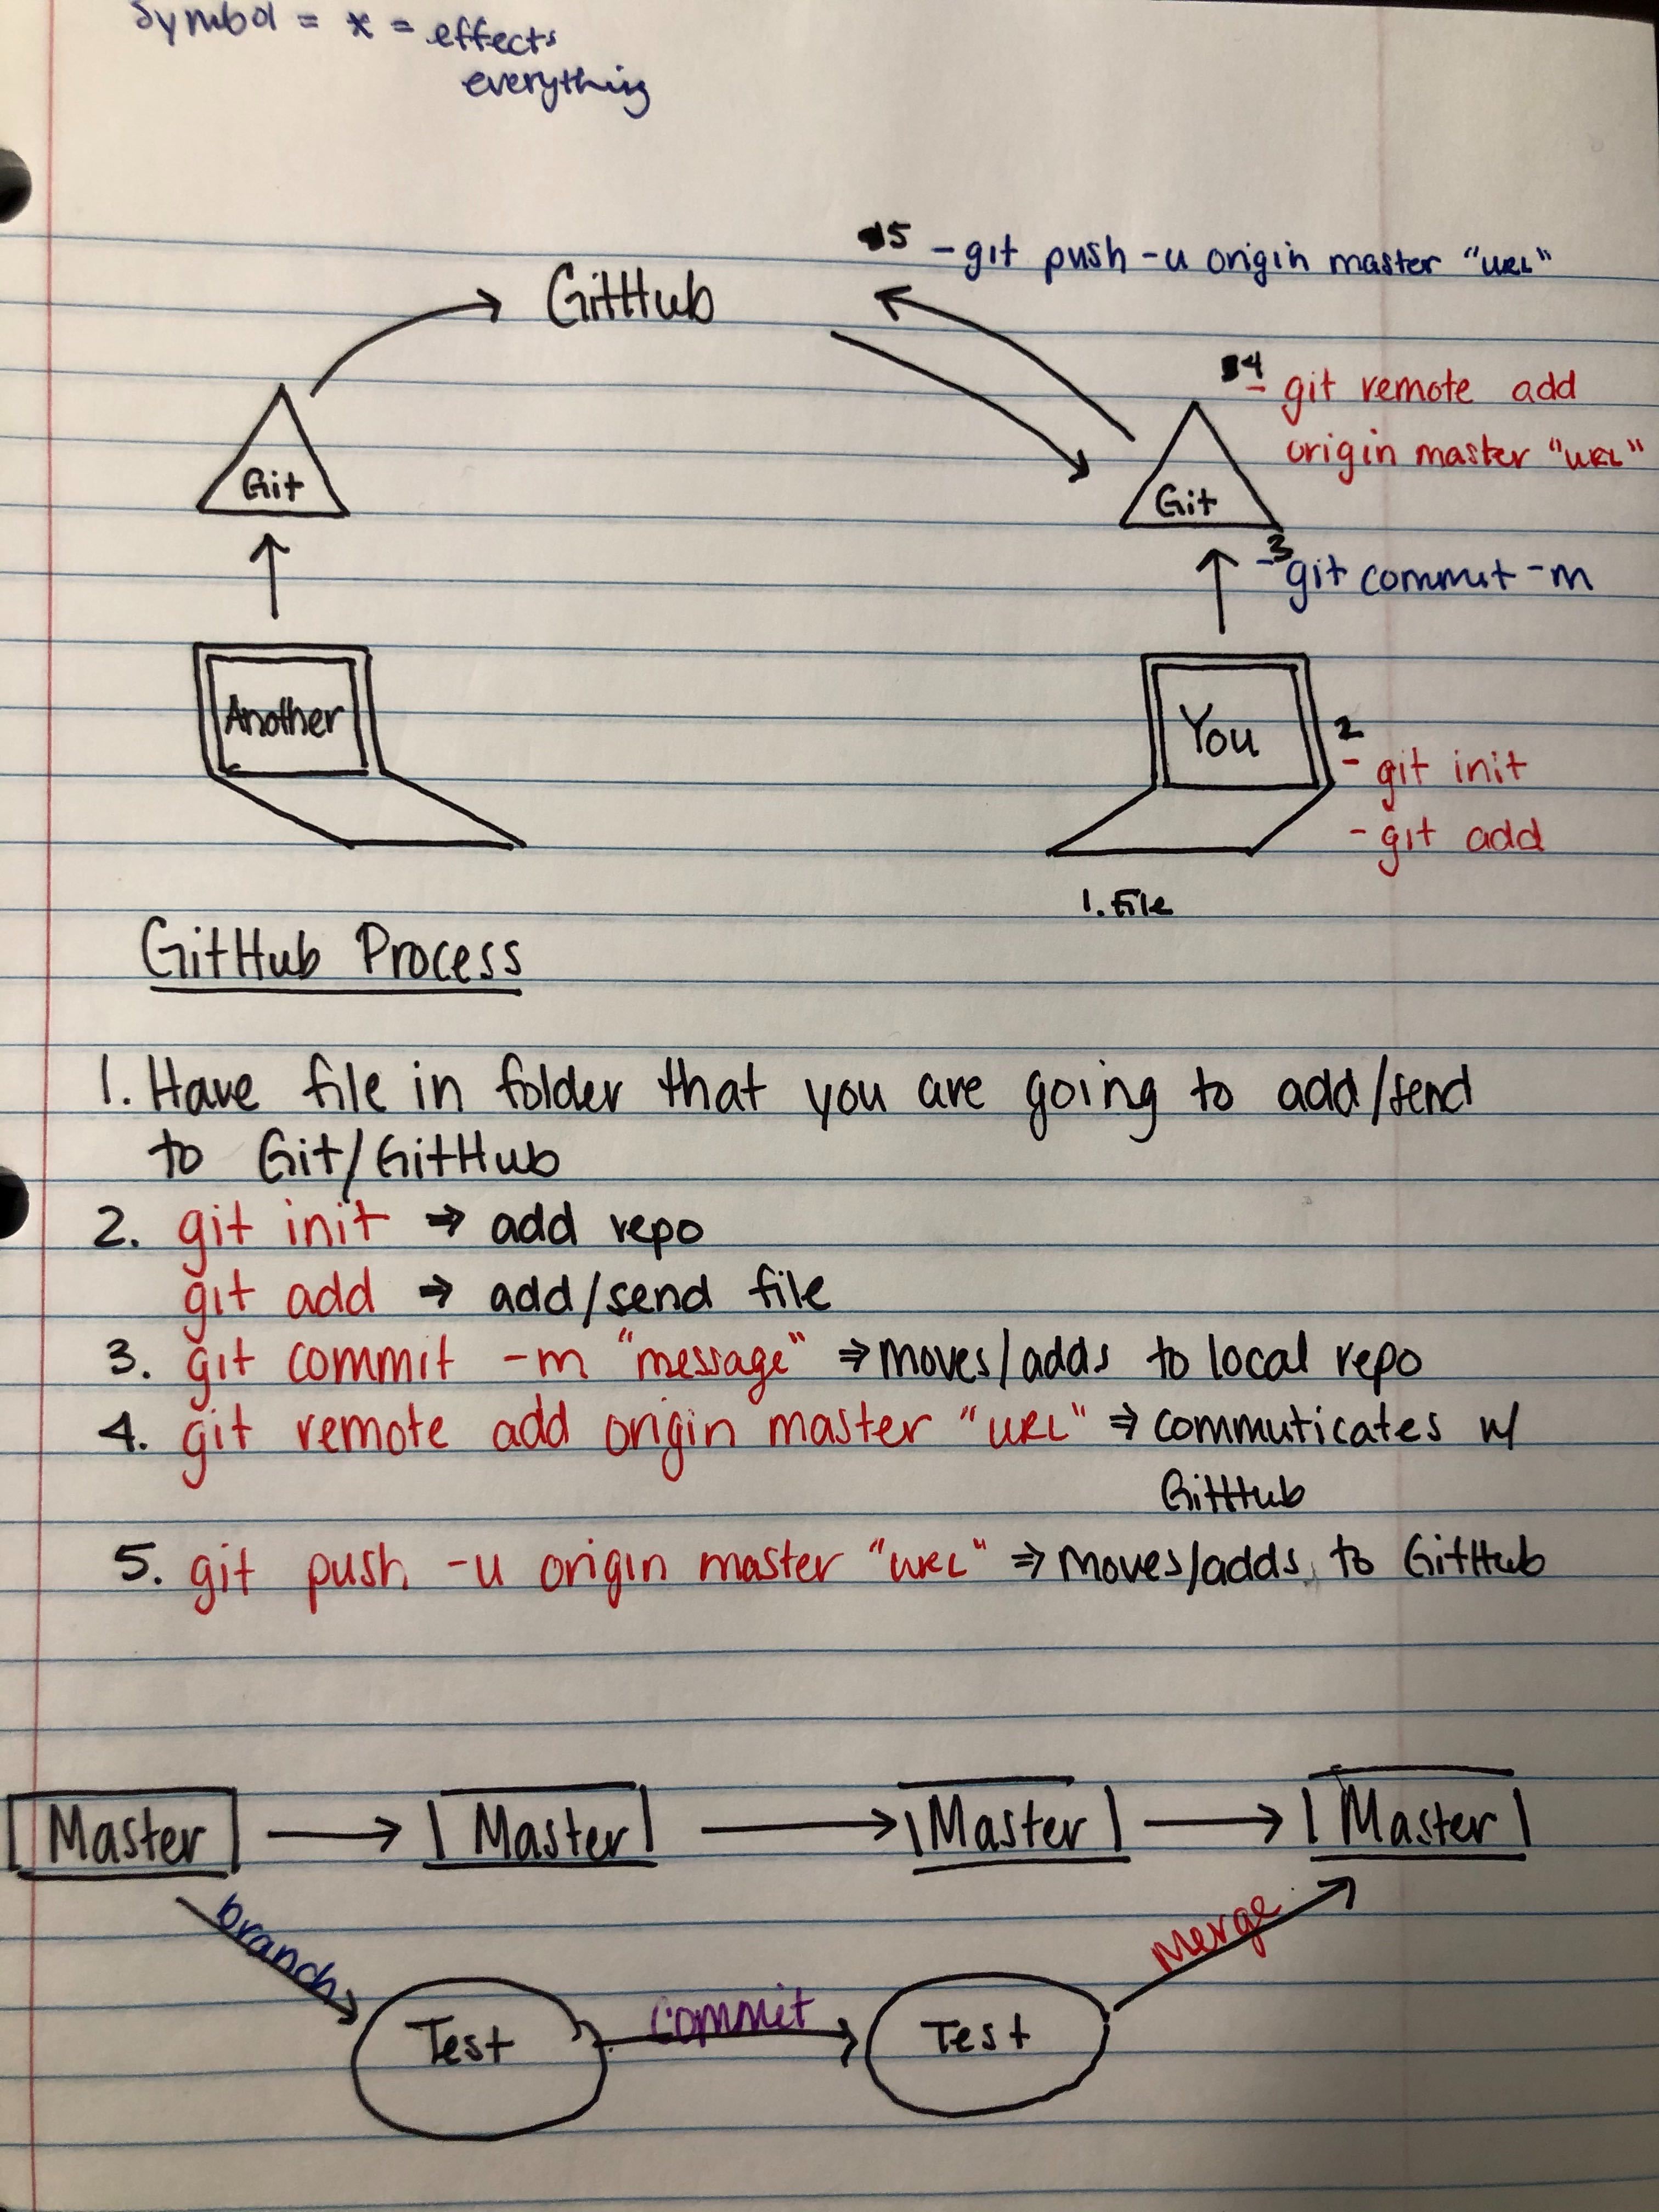 Symbol = * = effects
everything
5 - git push -u origin master "URL"
GitHub
4 - git remote add
origin master "URL"
Git
Git
3
- git commit -m
Another
You
2
- git init
- git add
1. File
GitHub Process
1. Have file in folder that you are going to add/send
to Git/GitHub
2. git init ⇒ add repo
git add ⇒ add/send file
3. git commit -m "message" ⇒ moves/adds to local repo
4. git remote add origin master "URL" ⇒ commuticates w/
GitHub
5. git push -u origin master "URL" ⇒ moves/adds to GitHub
Master → Master → Master → Master
branch
Merge
Test
commit
Test